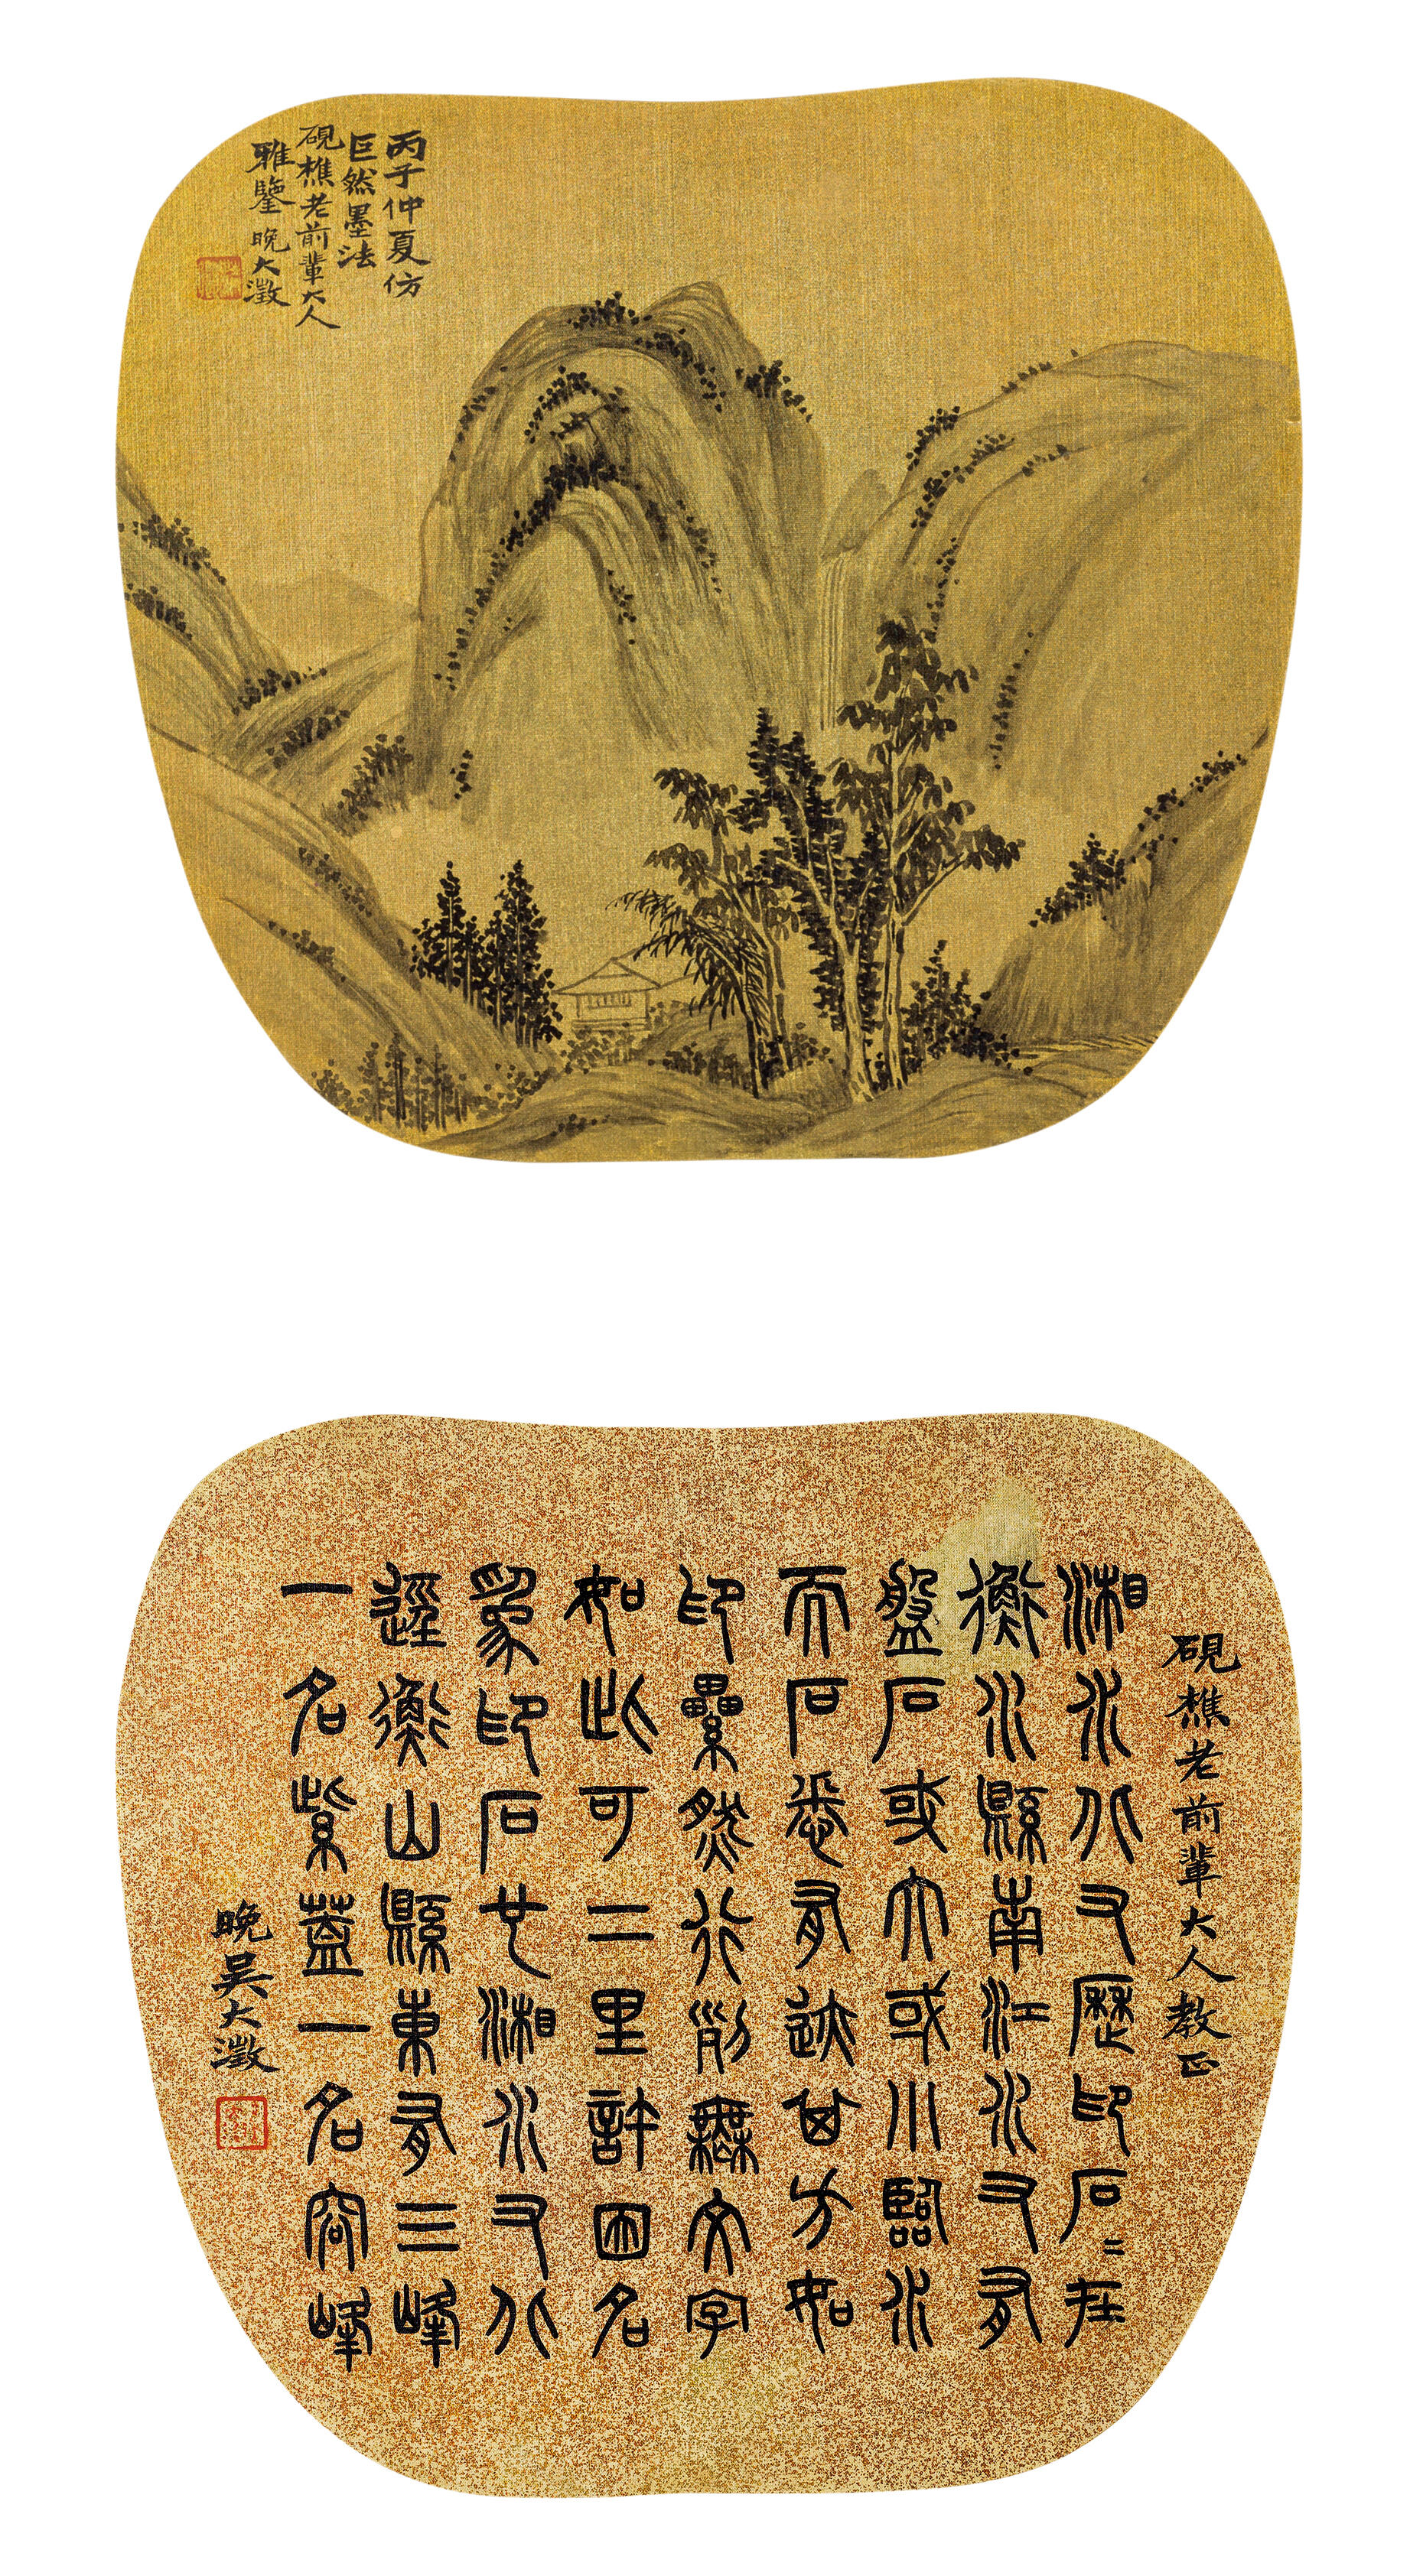 丙子仲夏仿
巨然墨法
硯樵老前輩大人
雅鑒 晚大澂
硯樵老前輩大人教正
湘水北又歷印石二在
衡水縣南江水又有
盤石或大或小臨水
而石悉有迹其方如
印纍然行列無文字
如此可二里許因名
為印石也湘水又北
逕衡山縣東有三峰
一名紫蓋一名容峰
晚吳大澂